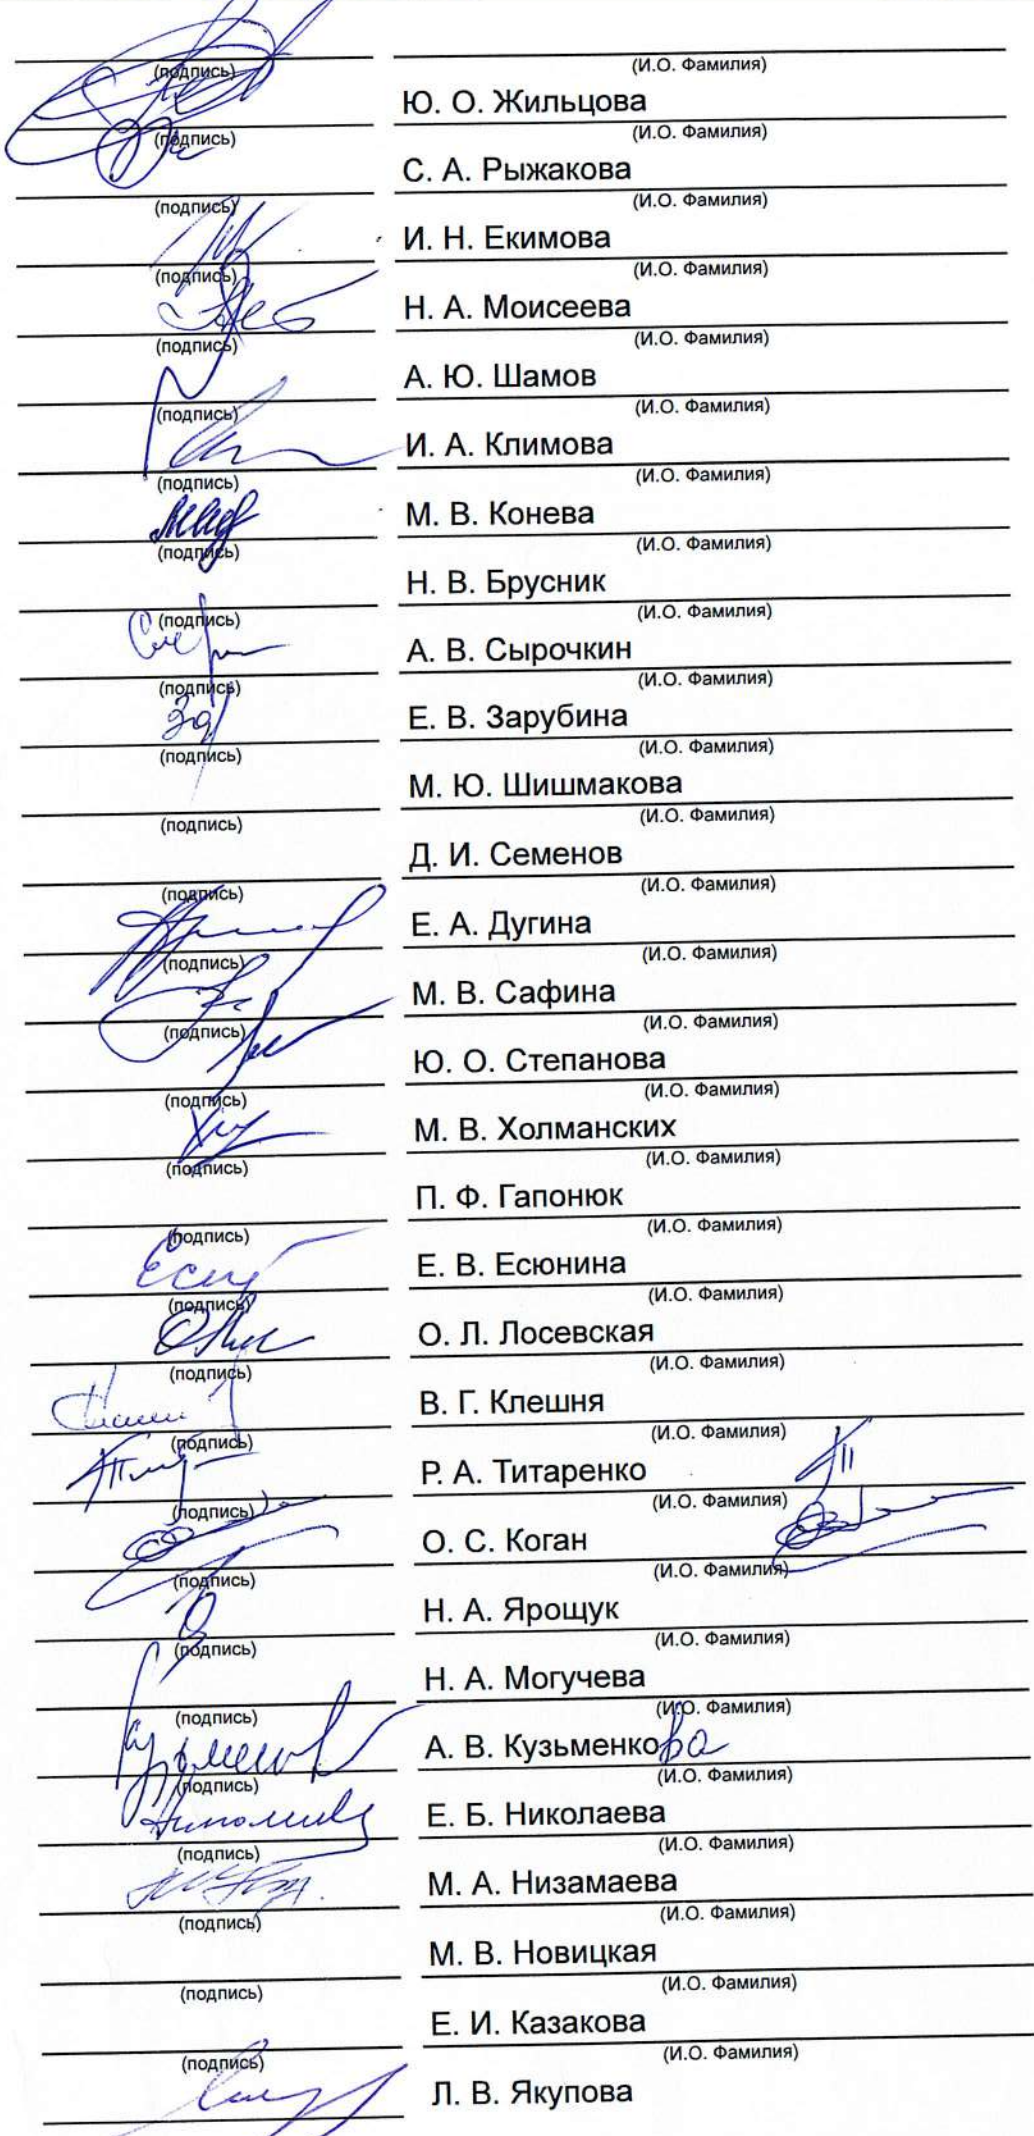 (подпись) (И.О. Фамилия)
Ю. О. Жильцова
(подпись) (И.О. Фамилия)
С. А. Рыжакова
(подпись) (И.О. Фамилия)
И. Н. Екимова
(подпись) (И.О. Фамилия)
Н. А. Моисеева
(подпись) (И.О. Фамилия)
А. Ю. Шамов
(подпись) (И.О. Фамилия)
И. А. Климова
(подпись) (И.О. Фамилия)
М. В. Конева
(подпись) (И.О. Фамилия)
Н. В. Брусник
(подпись) (И.О. Фамилия)
А. В. Сырочкин
(подпись) (И.О. Фамилия)
Е. В. Зарубина
(подпись) (И.О. Фамилия)
М. Ю. Шишмакова
(подпись) (И.О. Фамилия)
Д. И. Семенов
(подпись) (И.О. Фамилия)
Е. А. Дугина
(подпись) (И.О. Фамилия)
М. В. Сафина
(подпись) (И.О. Фамилия)
Ю. О. Степанова
(подпись) (И.О. Фамилия)
М. В. Холманских
(подпись) (И.О. Фамилия)
П. Ф. Гапонюк
(подпись) (И.О. Фамилия)
Е. В. Есюнина
(подпись) (И.О. Фамилия)
О. Л. Лосевская
(подпись) (И.О. Фамилия)
В. Г. Клешня
(подпись) (И.О. Фамилия)
Р. А. Титаренко
(подпись) (И.О. Фамилия)
О. С. Коган
(подпись) (И.О. Фамилия)
Н. А. Ярощук
(подпись) (И.О. Фамилия)
Н. А. Могучева
(подпись) (И.О. Фамилия)
А. В. Кузьменкова
(подпись) (И.О. Фамилия)
Е. Б. Николаева
(подпись) (И.О. Фамилия)
М. А. Низамаева
(подпись) (И.О. Фамилия)
М. В. Новицкая
(подпись) (И.О. Фамилия)
Е. И. Казакова
(подпись) (И.О. Фамилия)
Л. В. Якупова